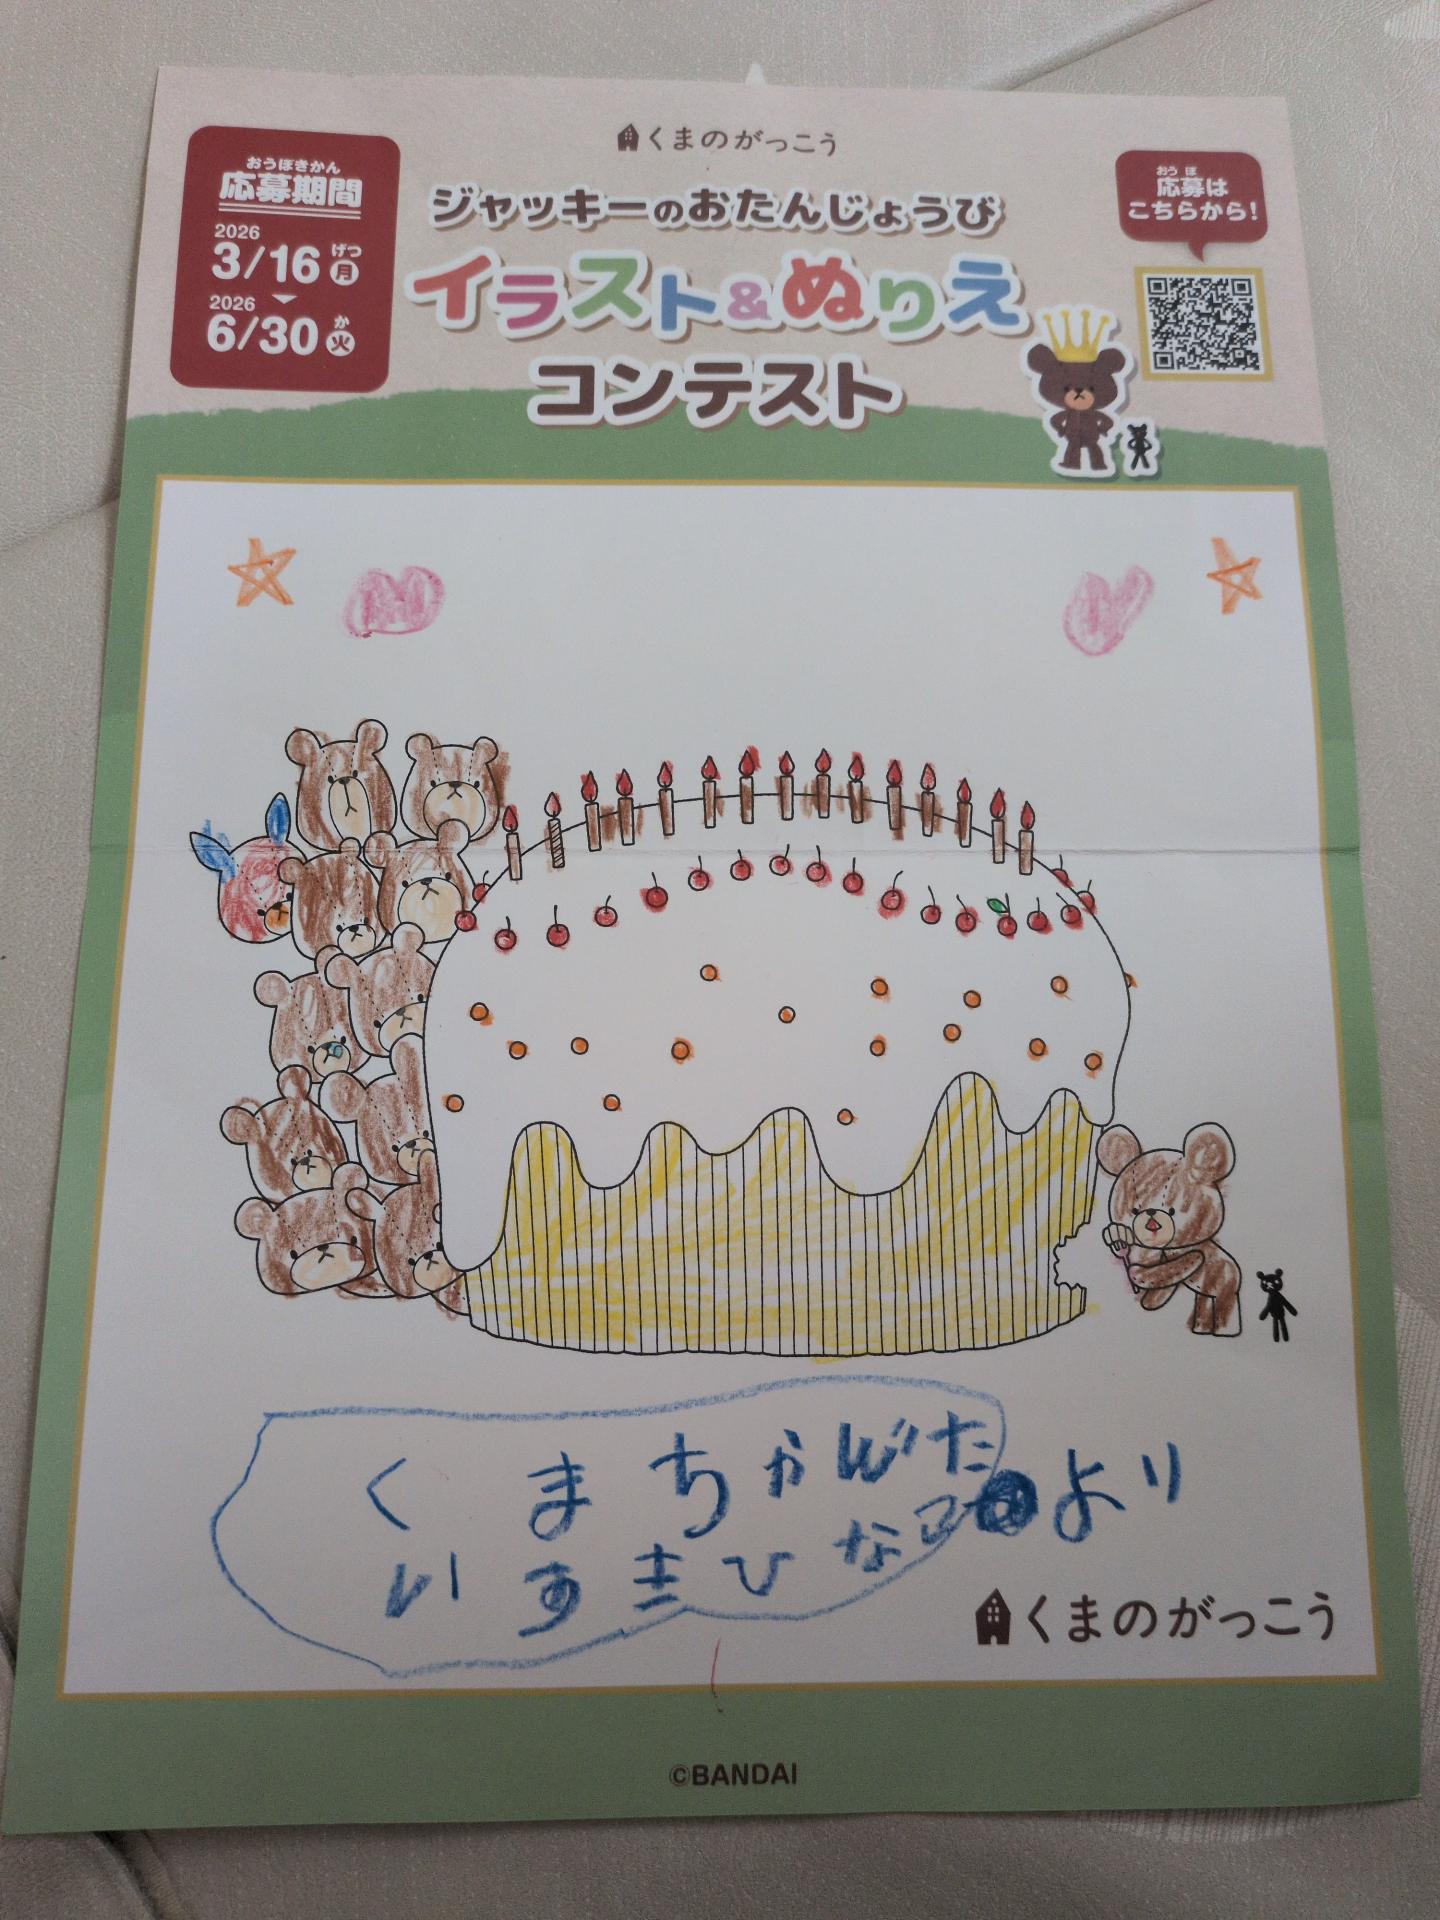 くまのがっこう
おうぼきかん
応募期間
2026
3/16 げつ 月
2026
6/30 か 火
ジャッキーのおたんじょうび
イラスト&ぬりえ
コンテスト
おうぼ
応募は
こちらから!
くまちゃんだ
より
いすきひなこ
くまのがっこう
©BANDAI